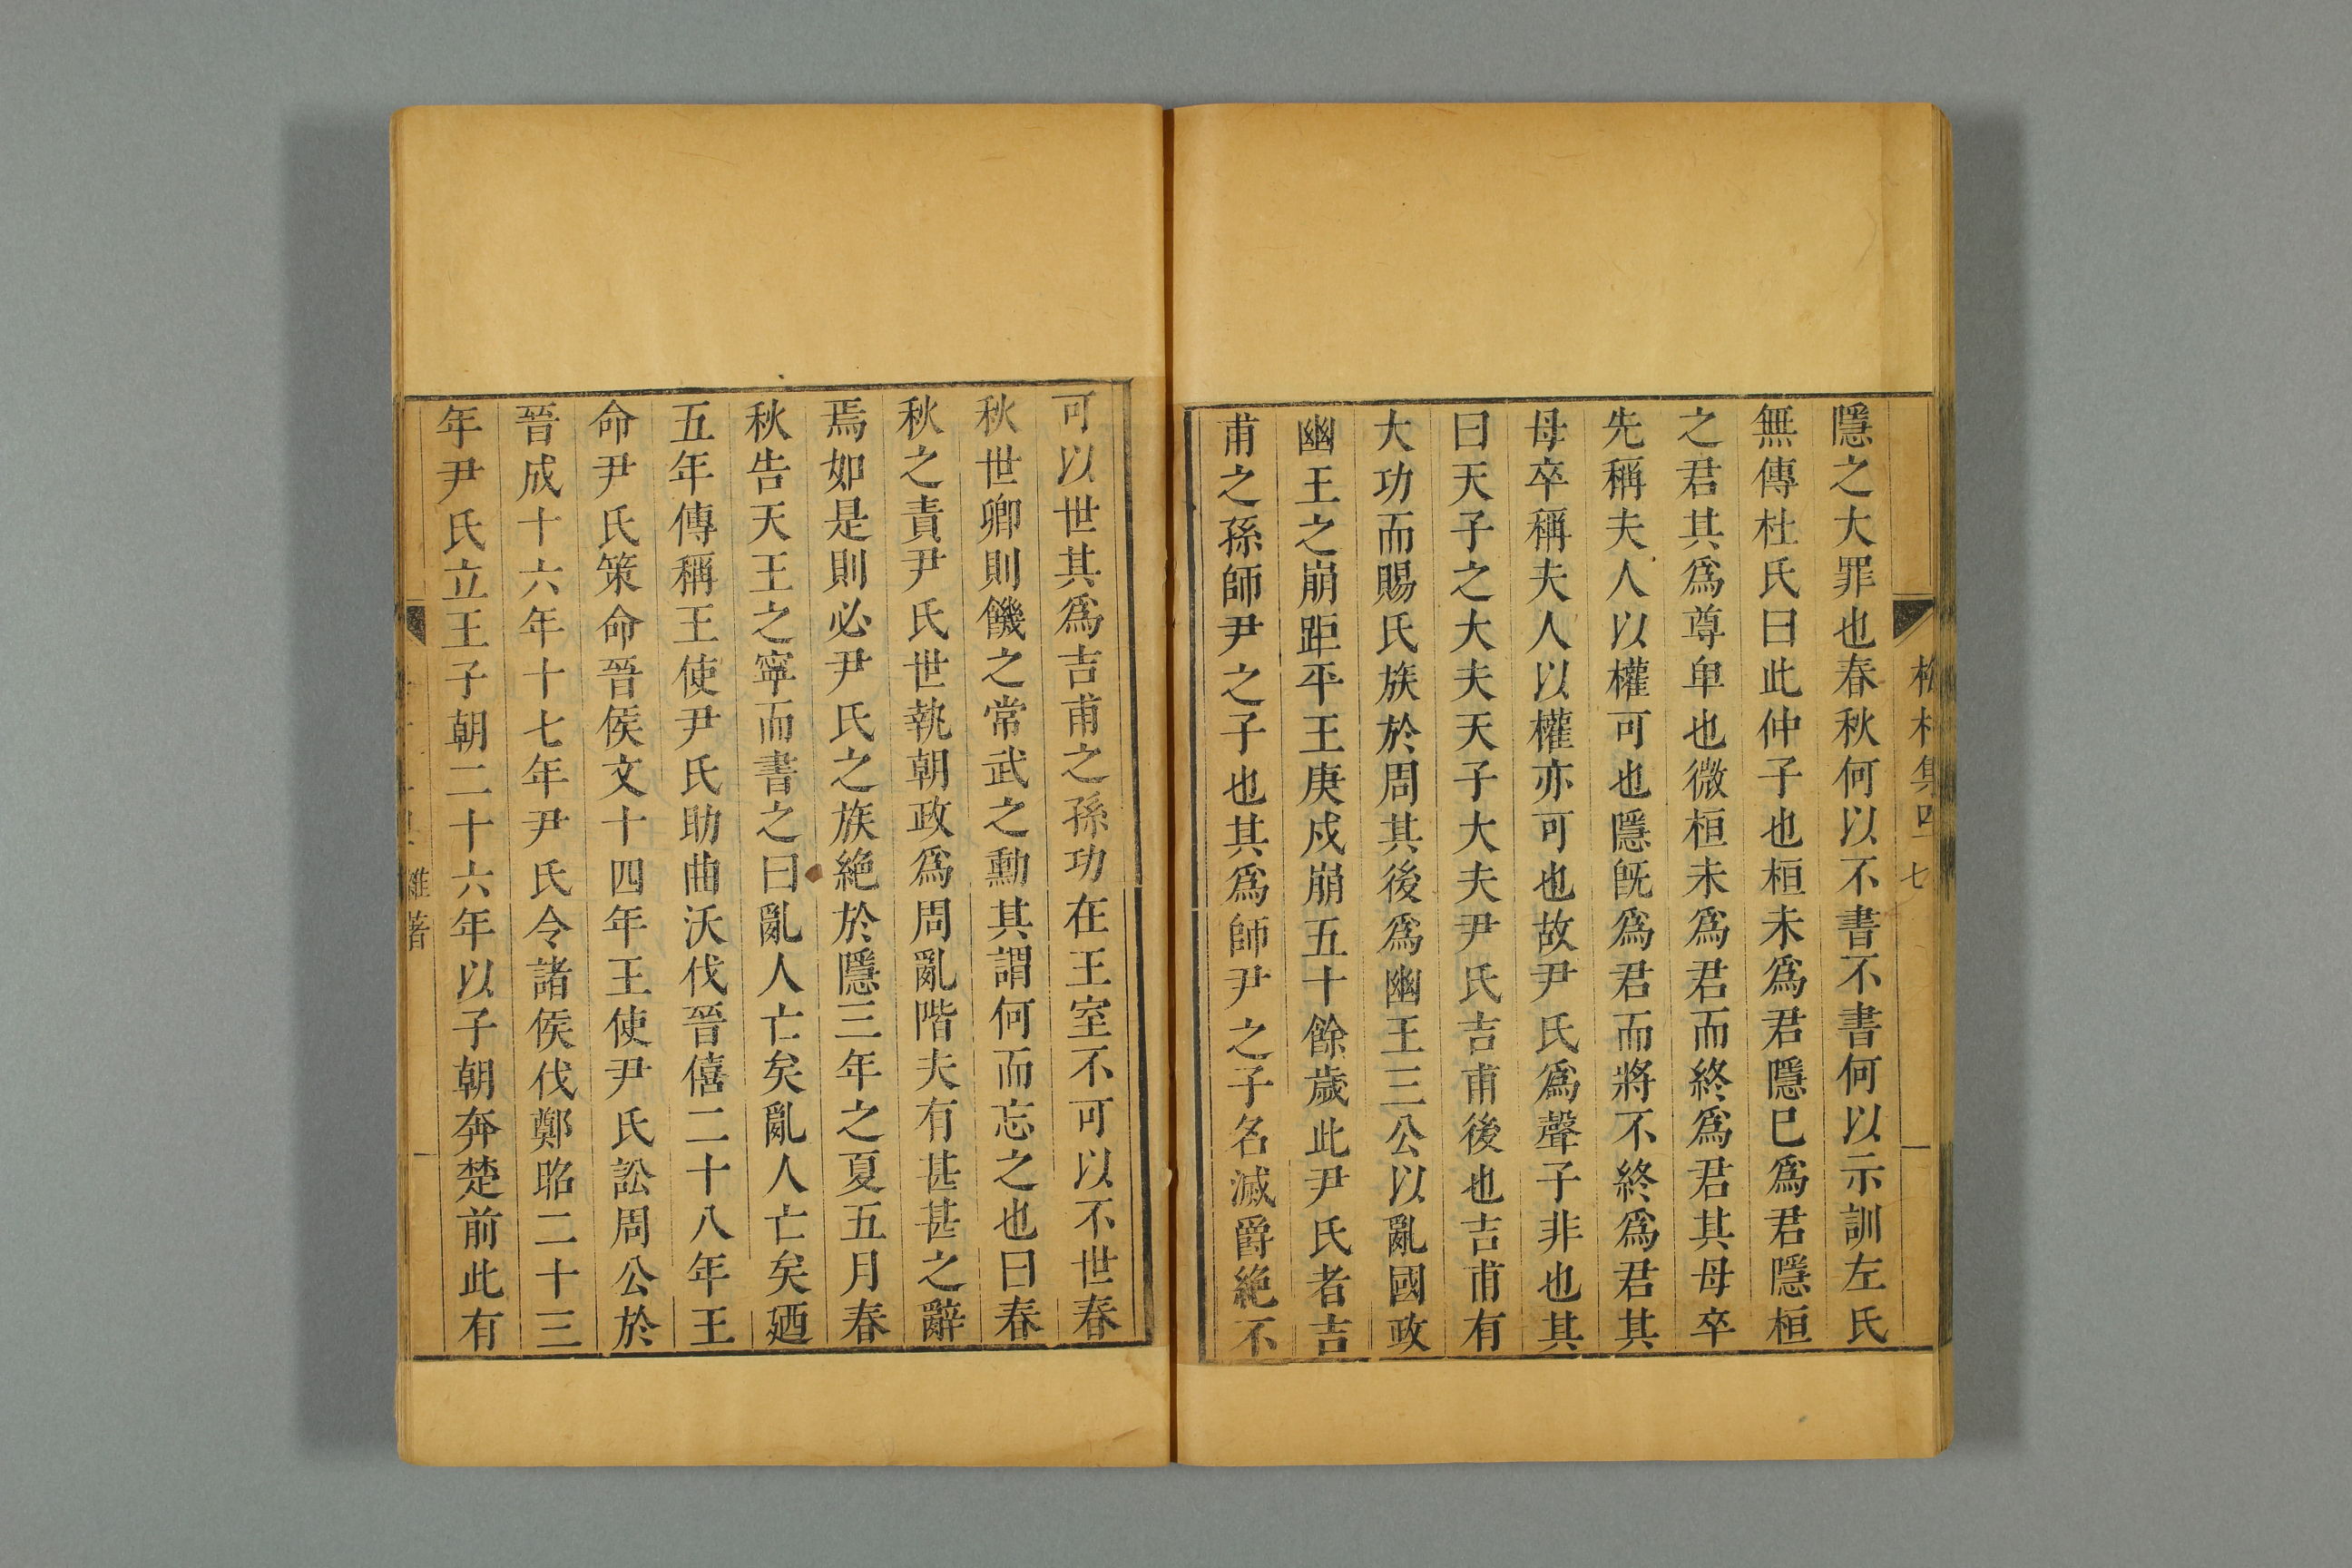 隱之大罪也春秋何以不書不書何以示訓左氏
無傳杜氏曰此仲子也桓未爲君隱巳爲君隱桓
之君其爲尊卑也微桓未爲君而終爲君其母卒
先稱夫人以權可也隱旣爲君而將不終爲君其
母卒稱夫人以權亦可也故尹氏爲聲子非也其
曰天子之大夫天子大夫尹氏吉甫後也吉甫有
大功而賜氏族於周其後爲幽王三公以亂國政
幽王之崩距平王庚戍崩五十餘歲此尹氏者吉
甫之孫師尹之子也其爲師尹之子名滅爵絶不
可以世其爲吉甫之孫功在王室不可以不世春
秋世卿則饑之常武之勳其謂何而忘之也曰春
秋之責尹氏世執朝政爲周亂階夫有甚甚之辭
焉如是則必尹氏之族絶於隱三年之夏五月春
秋告天王之寧而書之曰亂人亡矣亂人亡矣廼
五年傳稱王使尹氏助曲沃伐晉僖二十八年王
命尹氏策命晉侯文十四年王使尹氏訟周公於
晉成十六年十七年尹氏令諸侯伐鄭昭二十三
年尹氏立王子朝二十六年以子朝奔楚前此有
集四 七
雜著